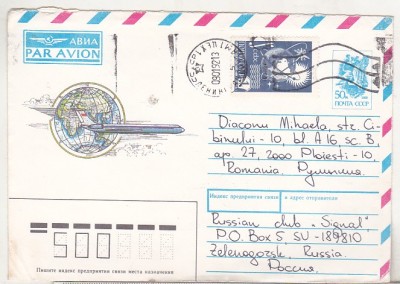 АВИА
PAR AVION
50к
ПОЧТА СССР
Diaconu Mihaela, str. Ci-
binului-10, bl. A 16 sc. B,
ap. 27, 2000 Ploiesti-10,
Romania. Румыния.
Индекс предприятия связи и адрес отправителя
Russian club „Signal"
P.O. Box 5, SU-189810
Zelenogorsk, Russia.
Россия.
500
Пишите индекс предприятия связи места назначения